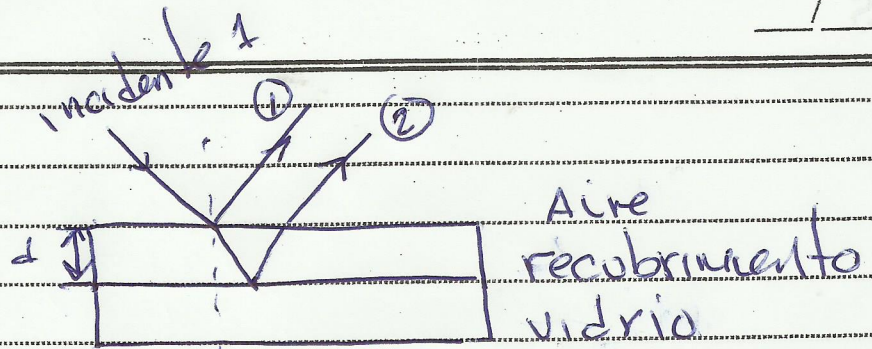 incidente 1
①
②
Aire
d
recubrimiento
vidrio